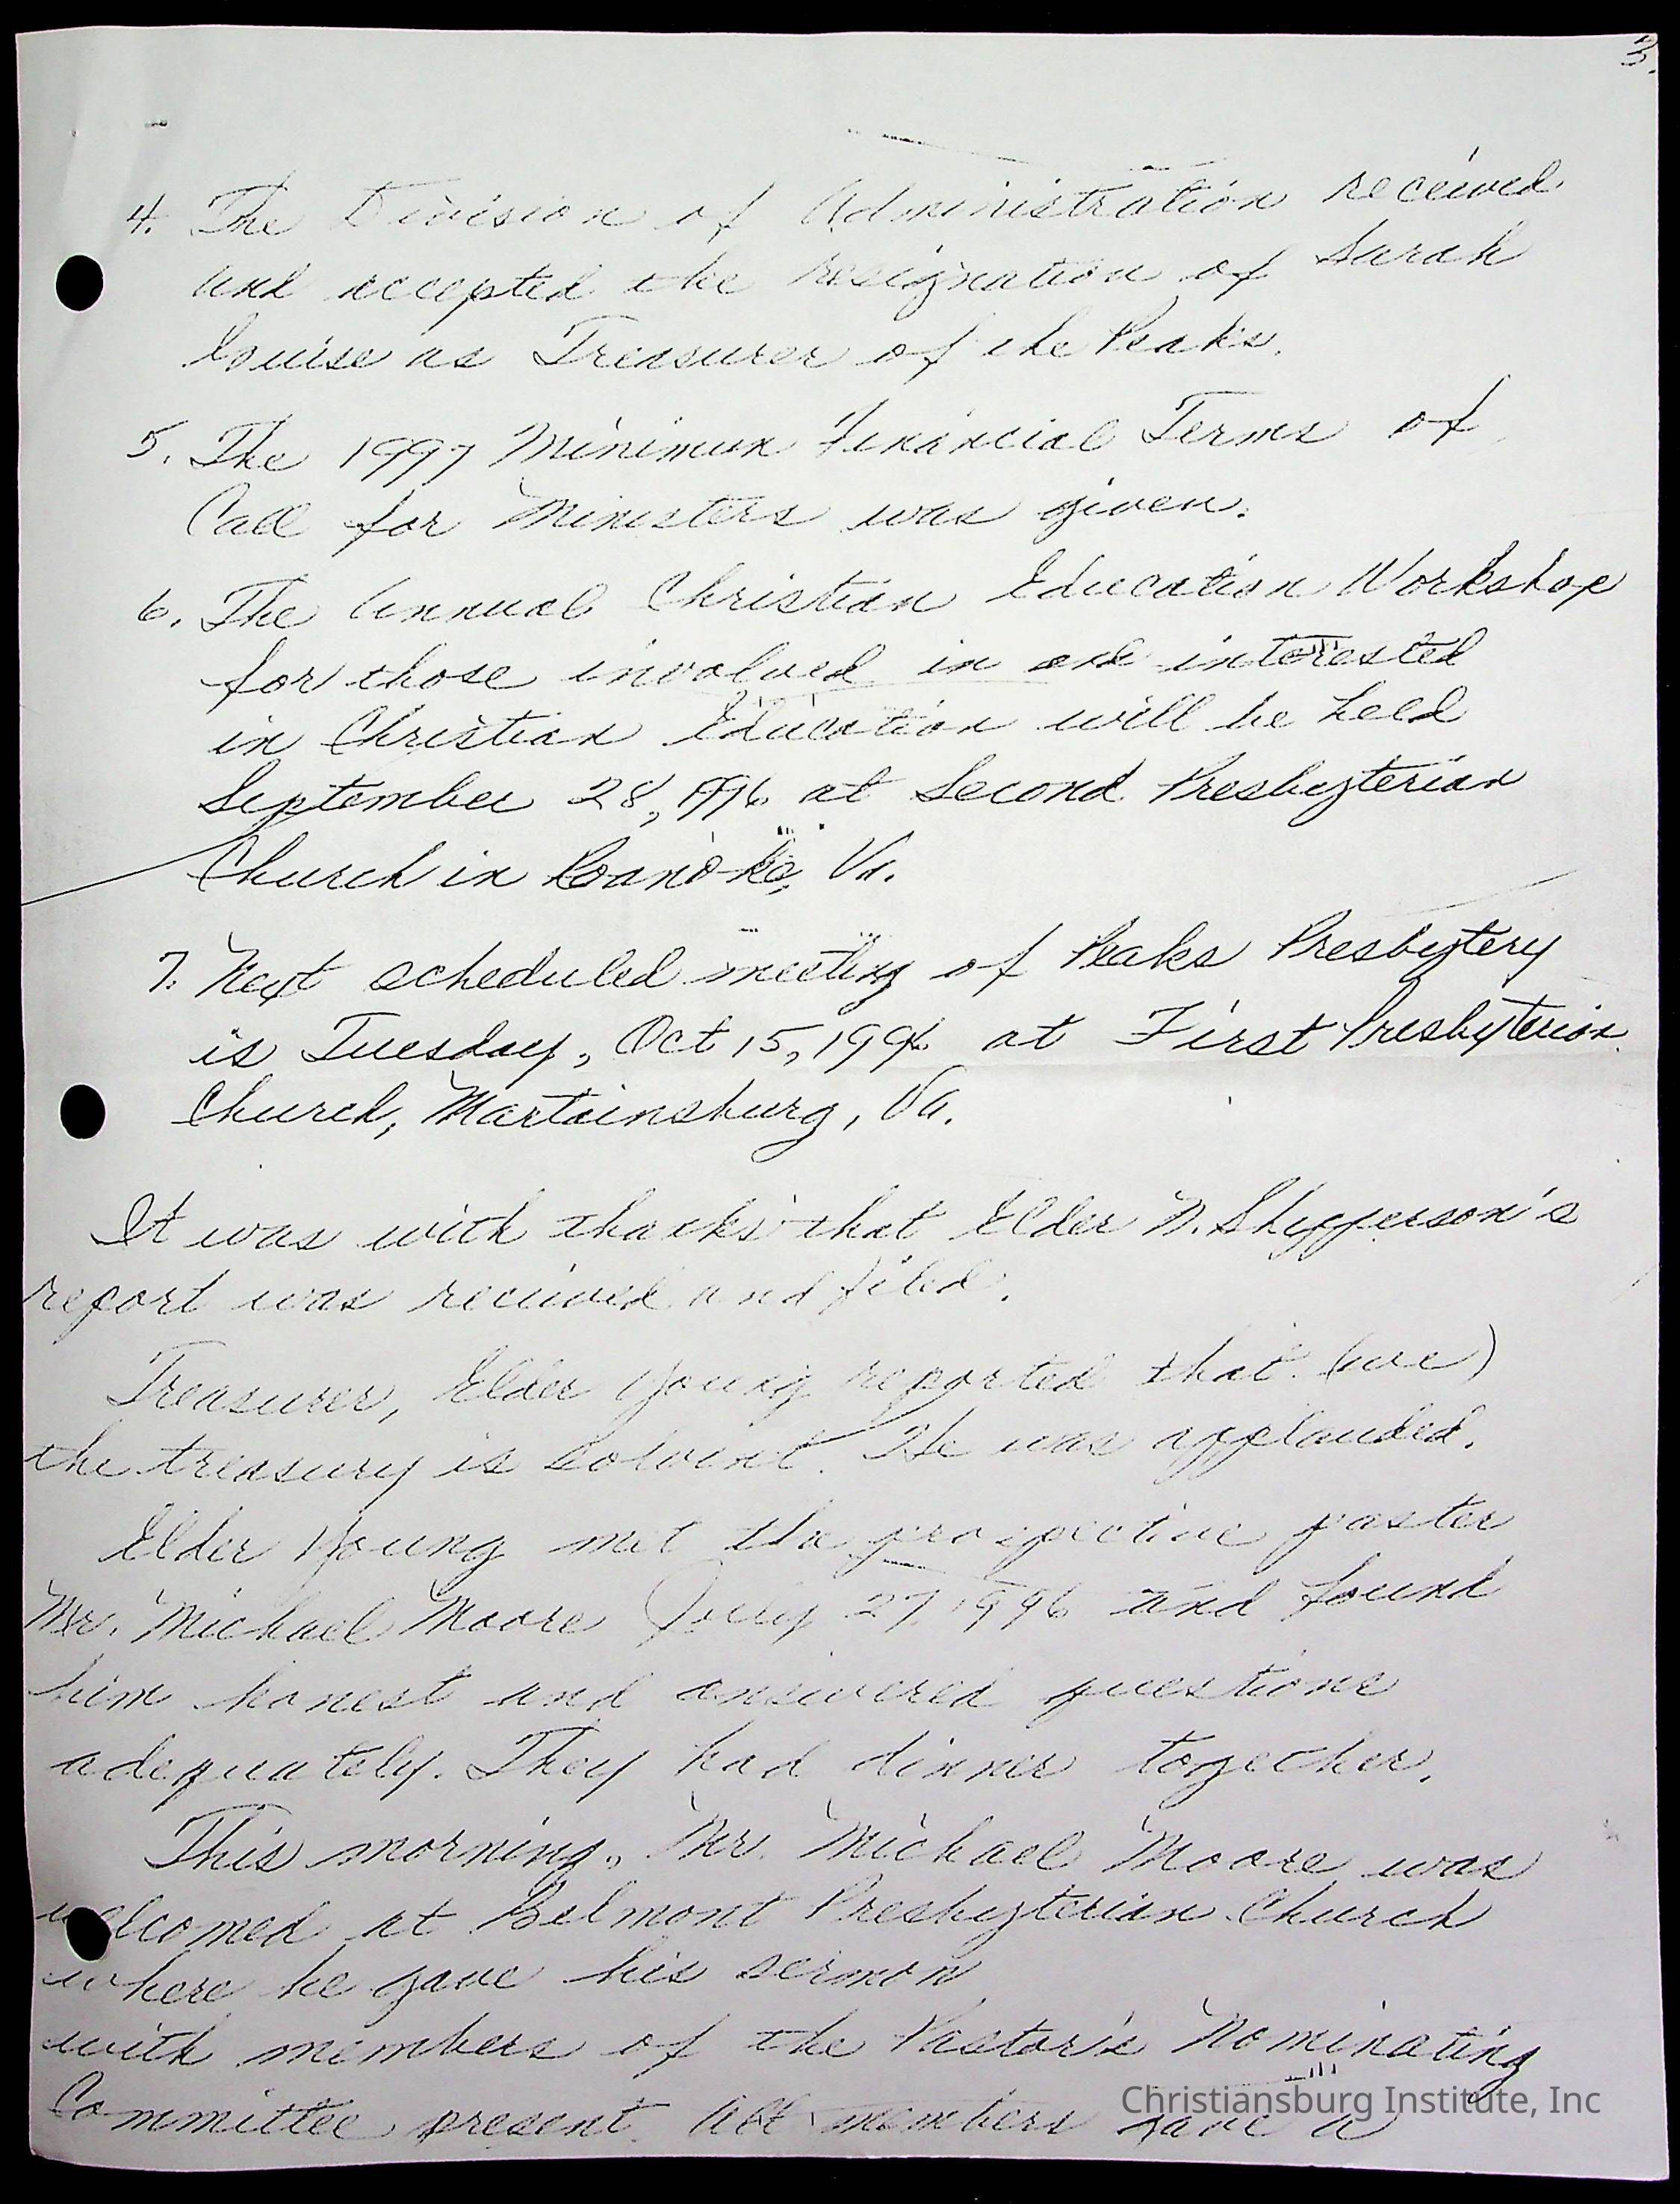 3.
4. The Division of Administration received
and accepted the resignation of Sarah
Louise as Treasurer of the Peaks.
5. The 1997 Minimum Financial Terms of
Call for Ministers was given.
6. The Annual Christian Education Workshop
for those involved in and interested
in Christian Education will be held
September 28, 1996 at Second Presbyterian
Church in Roanoke, Va.
7. Next scheduled meeting of Peaks Presbytery
is Tuesday, Oct 15, 1996 at First Presbyterian
Church, Martainsburg, Va.
It was with thanks that Elder N. Shepperson's
report was received and filed.
Treasurer, Elder Young reported that (we)
the treasury is solvent. He was applauded.
Elder Young met the prospective paster
Mr. Michael Moore July 27, 1996 and found
him honest and answered questions
adequately. They had dinner together.
This morning, Mr. Michael Moore was
welcomed at Belmont Presbyterian Church
where he gave his sermon
with members of the Pastor's Nominating
Committee present. All members gave a
Christiansburg Institute, Inc